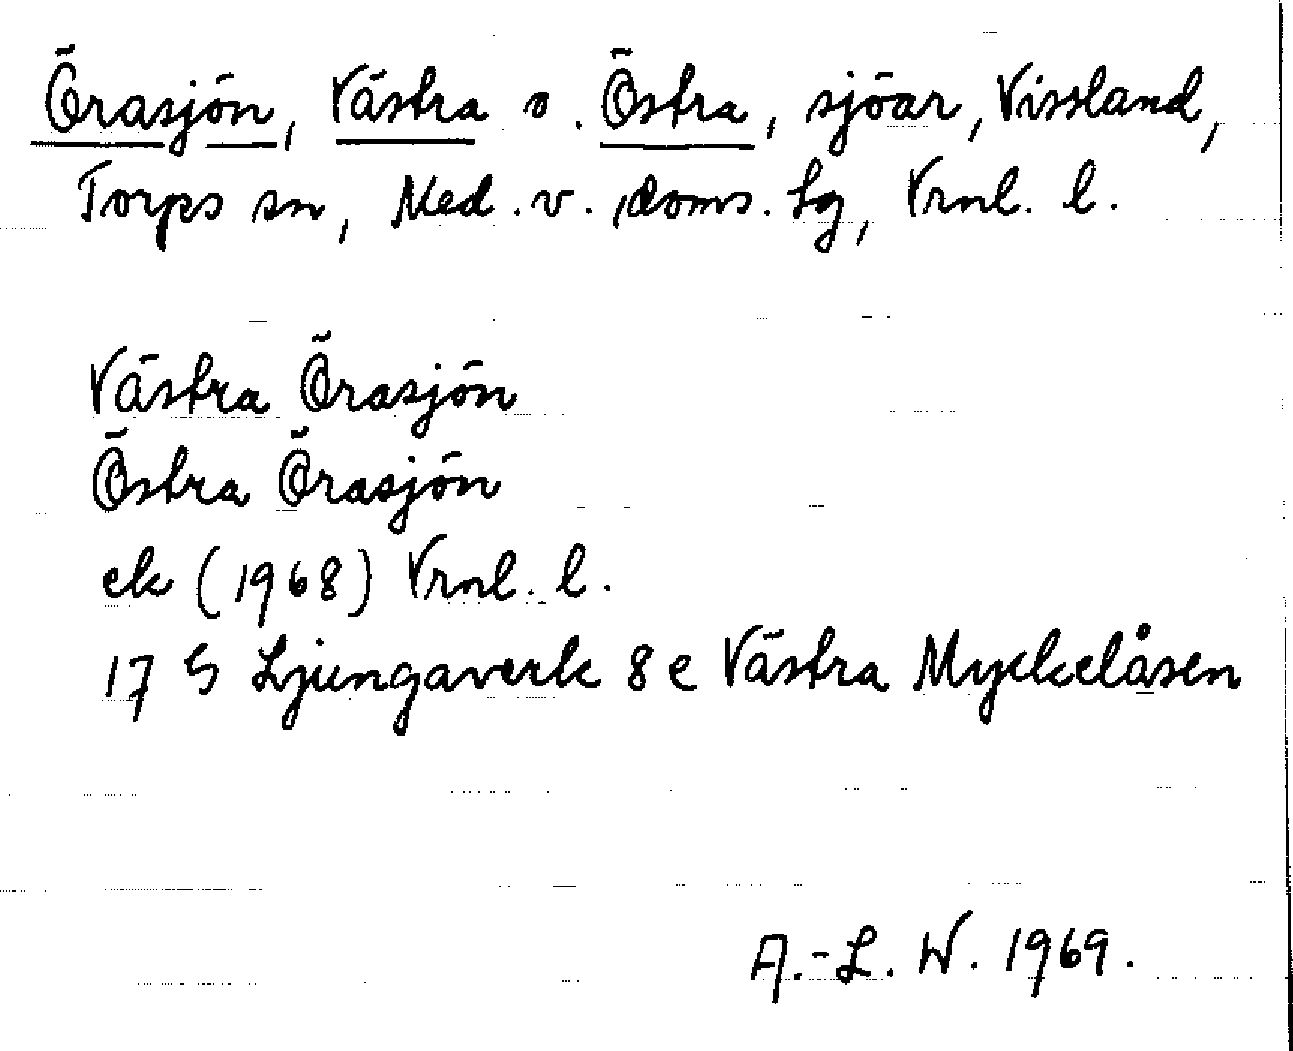 Örasjön, Västra o. Östra, sjöar, Vissland,
Torps sn, Med. v. doms. lg, Vrnl. l.
Västra Örasjön
Östra Örasjön
ek (1968) Vrnl. l.
17 G Ljungaverk 8 e Västra Myckelåsen
A.-L. W. 1969.